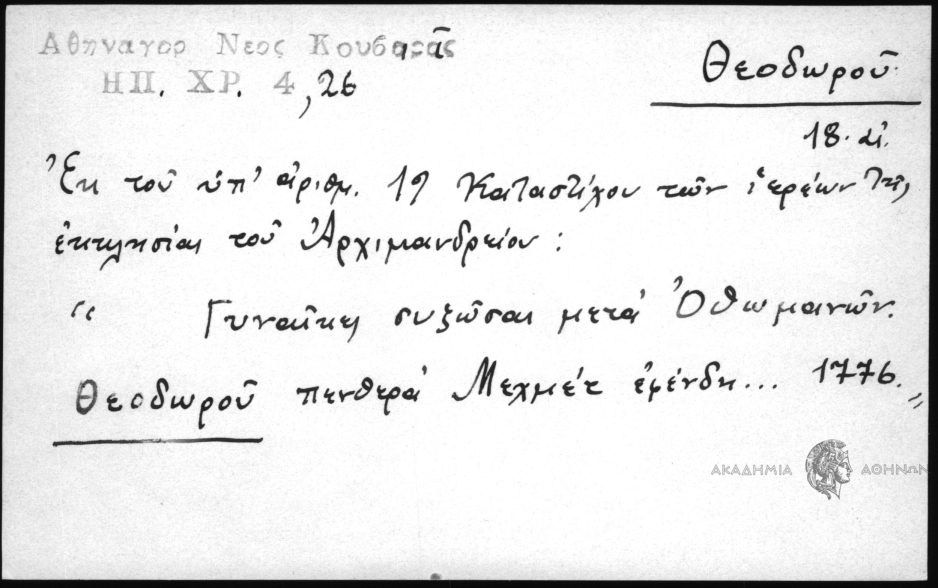 Αθηναγορ Νεος Κουβαρᾶς
ΗΠ. ΧΡ. 4, 26
Θεοδωροῦ
18. αἰ.
Ἐκ τοῦ ὑπ' ἀριθμ. 19 Καταστίχου τῶν ἱερέων τῆς
ἐκκλησίας τοῦ Ἀρχιμανδρείου:
“ Γυναῖκες συζῶσαι μετὰ Ὀθωμανῶν.
Θεοδωροῦ πενθερὰ Μεχμέτ ἐφένδη... 1776. "
ΑΚΑΔΗΜΙΑ ΑΘΗΝΩΝ